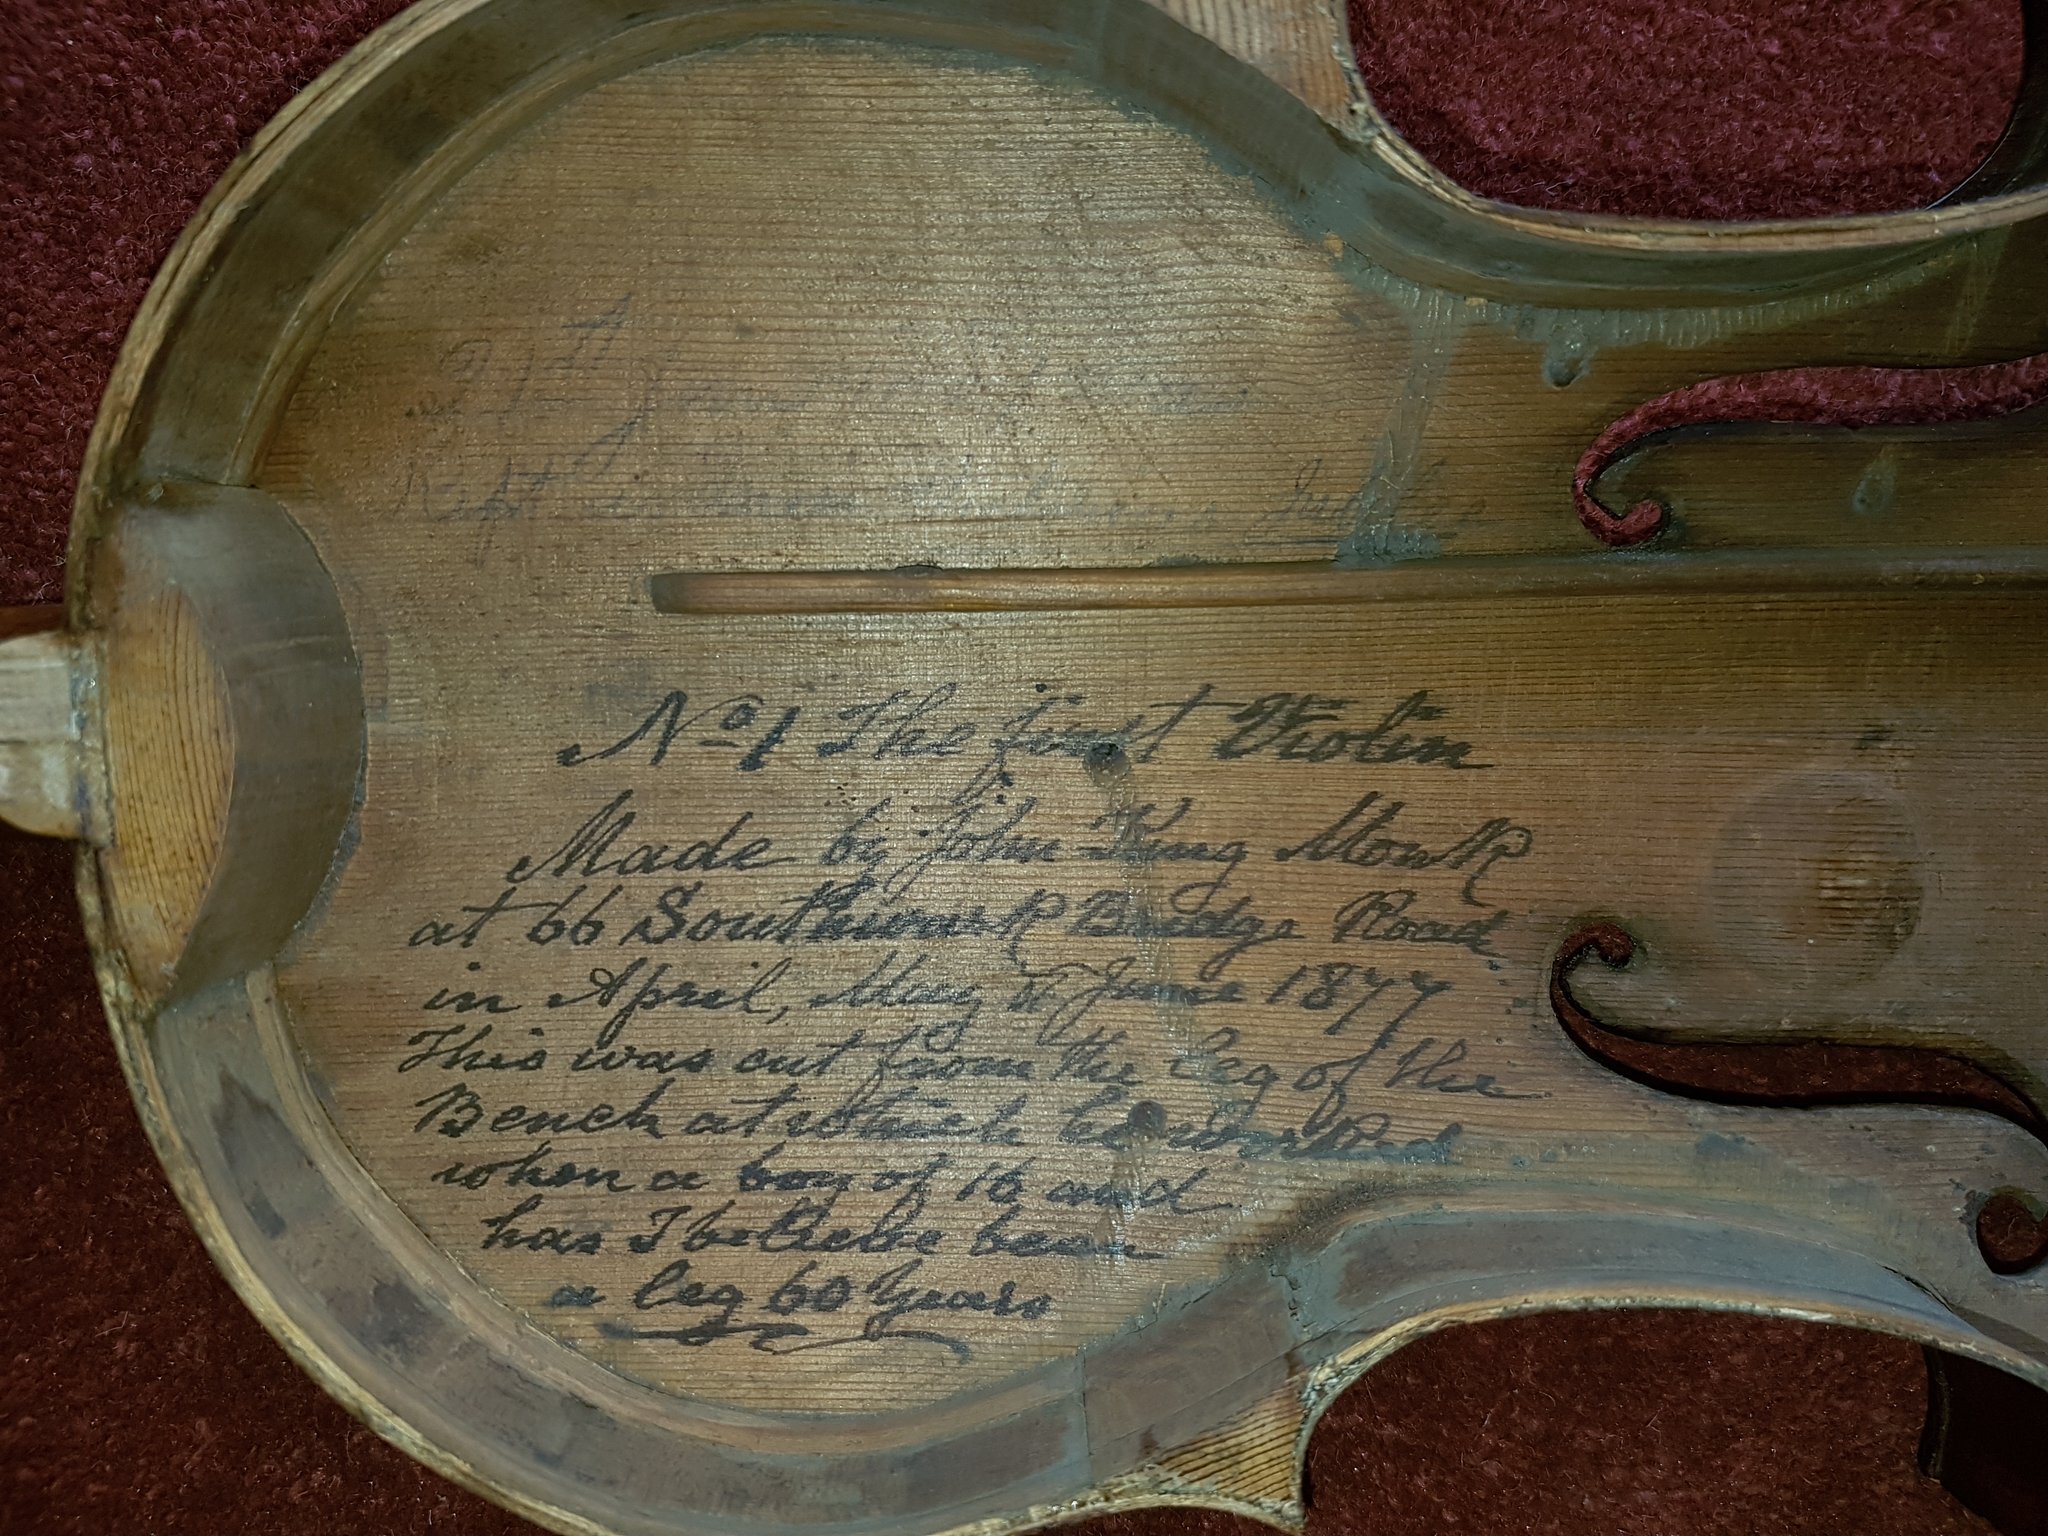 Nº 1 The first Violin
Made by John King Monk
at 66 Southwark Bridge Road
in April, May & June 1877
This was cut from the leg of the
Bench at which he worked
when a boy of 16 and
has I believe been
a leg 60 Years